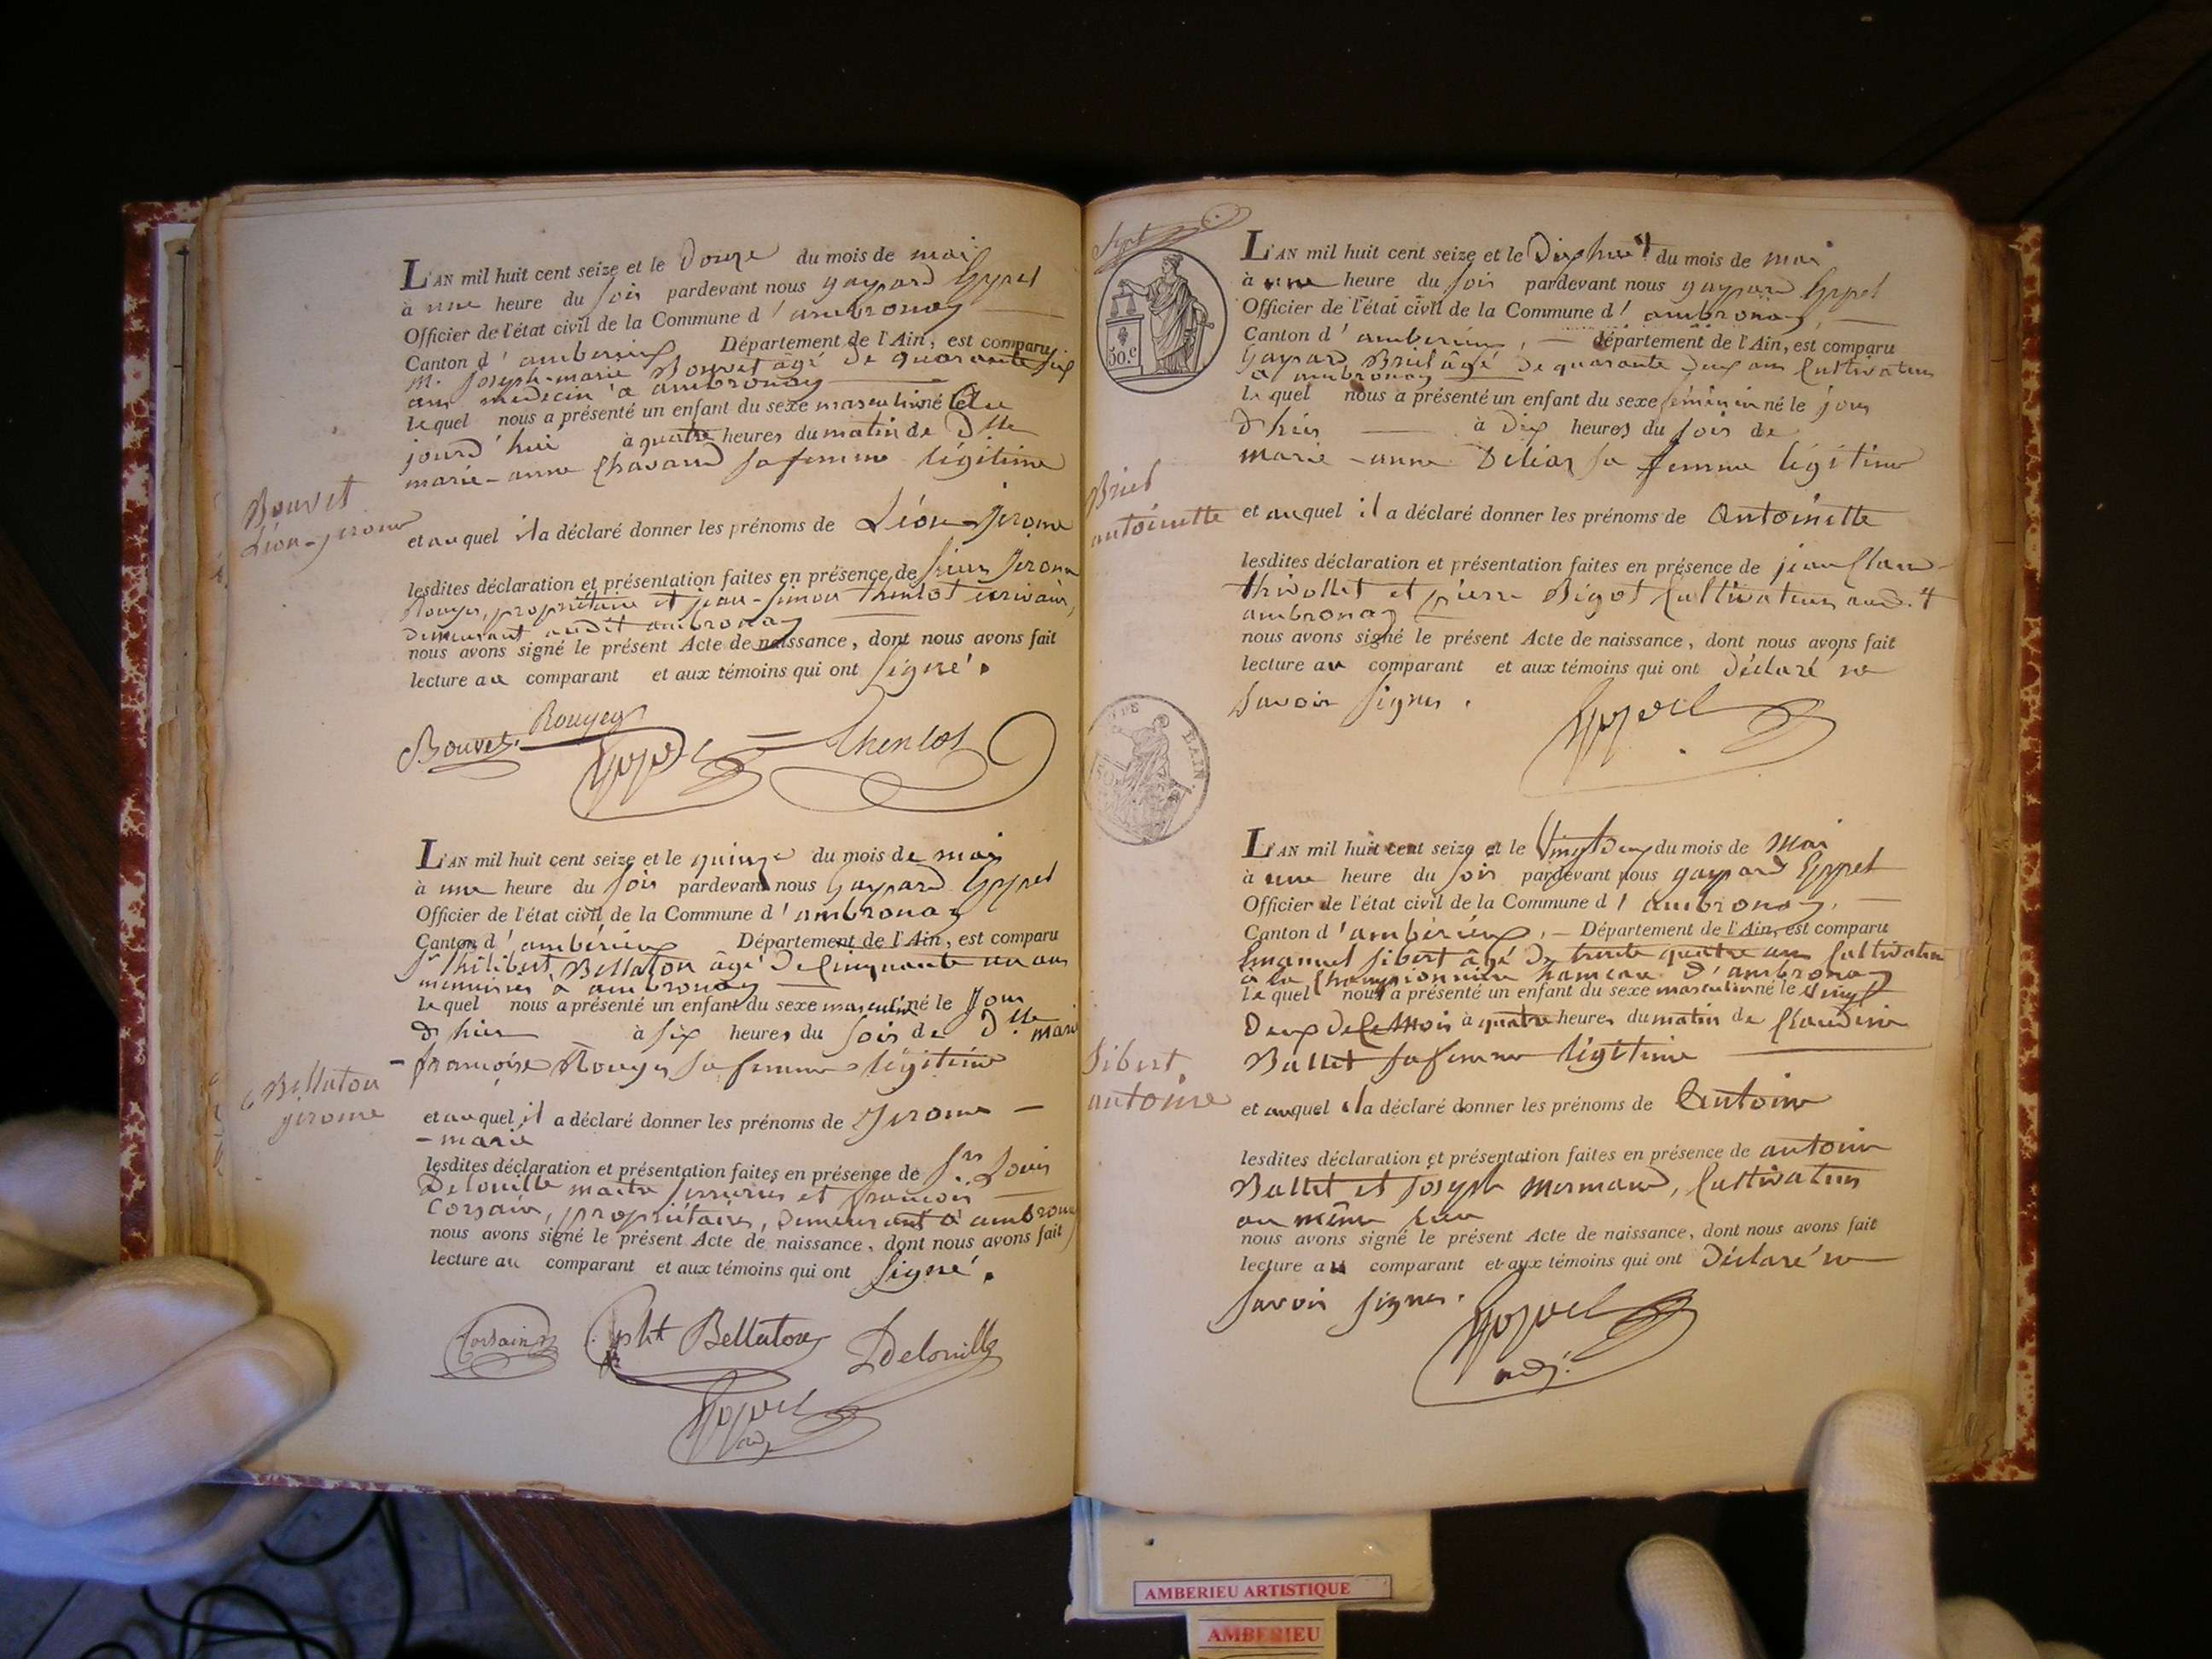 L'AN mil huit cent seize et le Douze du mois de mai
à une heure du soir pardevant nous gaspard
Officier de l'état civil de la Commune d'ambronay
Canton d'amberieux Département de l'Ain, est comparu
M. Joseph-marie Bouvet âgé de quarante six
ans médecin à ambronay
lequel nous a présenté un enfant du sexe masculin né le
jourd'hui à quatre heures du matin de Dlle
marie-anne Chavand sa femme légitime
Bouvet
Léon-jerome
et auquel il a déclaré donner les prénoms de Léon-Jerome
lesdites déclaration et présentation faites en présence de sieur Jerome
Rouyer, propriétaire et jean-simon écrivain,
Demeurant audit ambronay
nous avons signé le présent Acte de naissance, dont nous avons fait
lecture au comparant et aux témoins qui ont signé.
Bouvet Rouyer
L'AN mil huit cent seize et le quinze du mois de mai
à une heure du soir pardevant nous Gaspard
Officier de l'état civil de la Commune d'ambronay
Canton d'ambérieux Département de l'Ain, est comparu
Sr Philibert Bellaton âgé de Cinquante un ans
menuisier à ambronay
lequel nous a présenté un enfant du sexe masculin né le Jour
d'hier à six heures du soir de Dlle marie
-françoise Rouyer sa femme légitime
Bellaton
jerome
et auquel il a déclaré donner les prénoms de Jerome -
-marie
lesdites déclaration et présentation faites en présence de Sr Louis
Delouille maitre serrurier et françois
Corsain, propriétaires, Demeurant à ambronay
nous avons signé le présent Acte de naissance, dont nous avons fait
lecture au comparant et aux témoins qui ont signé.
Corsain pht Bellaton Delouille
adj.
Sept
50.c
L'AN mil huit cent seize et le Dix huit du mois de mai
à une heure du soir pardevant nous gaspard
Officier de l'état civil de la Commune d'ambronay,
Canton d'amberieux, département de l'Ain, est comparu
Gaspard Briel âgé de quarante deux ans Cultivateur
à ambronay
lequel nous a présenté un enfant du sexe féminin né le jour
d'hier à Dix heures du soir de
marie-anne sa femme légitime
Briel
antoinette
et auquel il a déclaré donner les prénoms de Antoinette
lesdites déclaration et présentation faites en présence de jean Claude
thivollet et pierre Bigot Cultivateurs audit
ambronay
nous avons signé le présent Acte de naissance, dont nous avons fait
lecture au comparant et aux témoins qui ont Déclaré ne
savoir signer.
DE L'AIN
L'AN mil huit cent seize et le Vingt Deux du mois de Mai
à une heure du soir pardevant nous gaspard
Officier de l'état civil de la Commune d'ambronay,
Canton d'ambérieux, Département de l'Ain, est comparu
Emanuel Sibert âgé de trente quatre ans Cultivateur
à la Championnière hameau d'ambronay
lequel nous a présenté un enfant du sexe masculin né le vingt
Deux de Ce Mois à quatre heures du matin de Claudine
Ballet sa femme légitime
Sibert
antoine
et auquel il a déclaré donner les prénoms de Antoine
lesdites déclaration et présentation faites en présence de antoine
Ballet et Joseph Mermand, Cultivateurs
au même lieu
nous avons signé le présent Acte de naissance, dont nous avons fait
lecture au comparant et aux témoins qui ont Déclaré ne
savoir signer.
adj.
AMBERIEU ARTISTIQUE
AMBERIEU